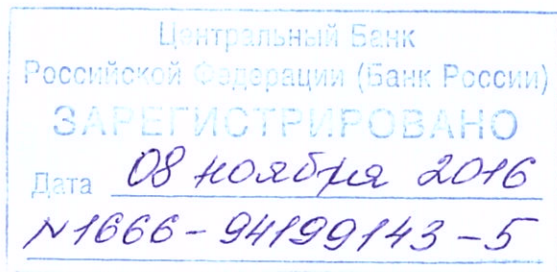 Центральный Банк
Российской Федерации (Банк России)
ЗАРЕГИСТРИРОВАНО
Дата 08 ноября 2016
N1666-94199143-5